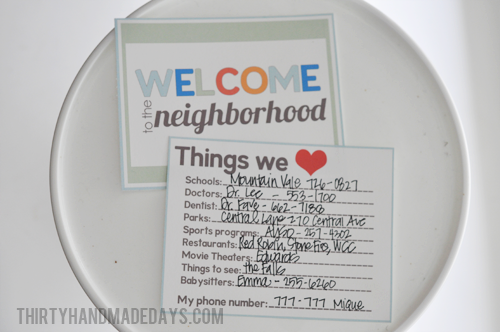 WELCOME
to the neighborhood
Things we
Schools: Mountain Vale 726-0827
Doctors: Dr. Lee - 553-1700
Dentist: Dr. Faye - 662-7180
Parks: Central Lane 270 Central Ave
Sports programs: AYSO - 257-4302
Restaurants: Red Robin, Stone Fire, WCC
Movie Theaters: Edwards
Things to see: the Falls
Babysitters: Emma - 255-6260
My phone number: 777-777 Mique
THIRTYHANDMADEDAYS.COM